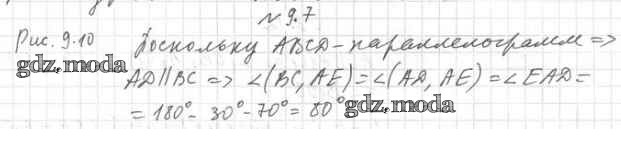 № 9.7
Рис. 9.10 Поскольку ABCD - параллелограмм =>
gdz.moda
AD || BC => ∠(BC, AE) = ∠(AD, AE) = ∠EAD =
= 180° - 30° - 70° = 80° gdz.moda